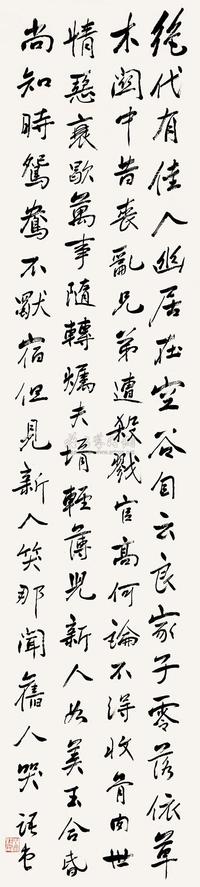 絕代有佳人幽居在空谷自云良家子零落依草
木關中昔喪亂兄弟遭殺戮官高何論不得收骨肉世
情惡衰歇萬事隨轉燭夫婿輕薄兒新人如美玉合昏
尚知時鴛鴦不獨宿但見新人笑那聞舊人哭